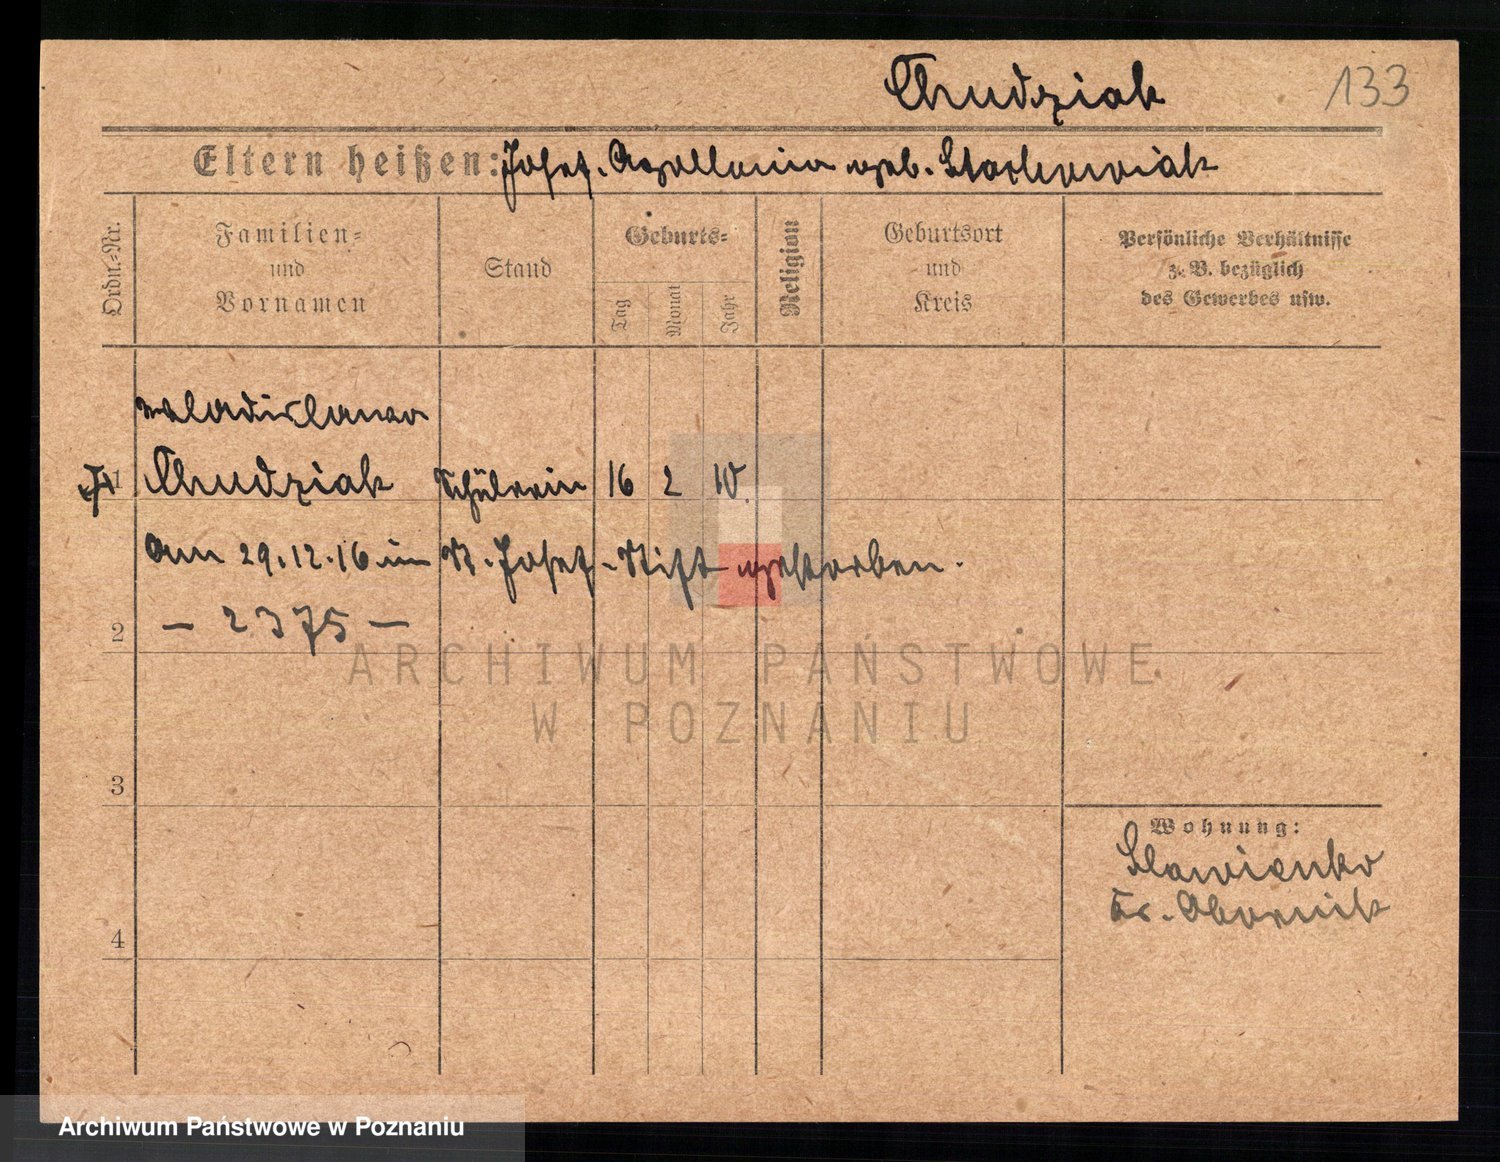 Chudziak 133
Eltern heißen: Josef. Apollonia geb. Stachowiak
Ordn.-Nr.
Familien- und Vornamen
Stand
Geburts-
Tag
Monat
Jahr
Religion
Geburtsort und Kreis
Persönliche Verhältnisse
z. B. bezüglich
des Gewerbes usw.
Wladislawa
1 Chudziak Schülerin 16 2 10.
am 29.12.16 im St. Josef-Stift gestorben.
- 2375 -
2
3
4
Wohnung:
Slawienko
Kr. Obornik
ARCHIWUM PAŃSTWOWE
W POZNANIU
Archiwum Państwowe w Poznaniu